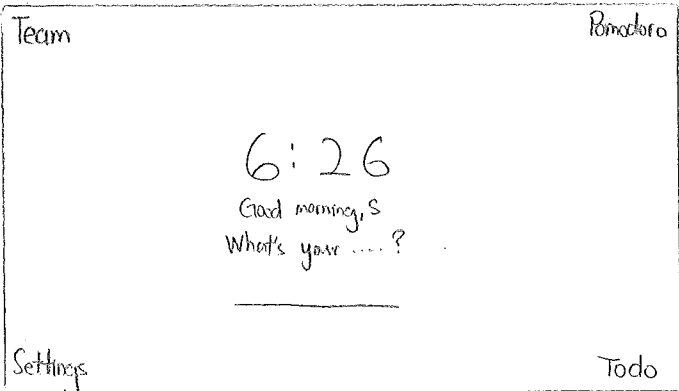 Team
Pomodoro
6:26
Good morning, S
What's your ....?
Settings
Todo